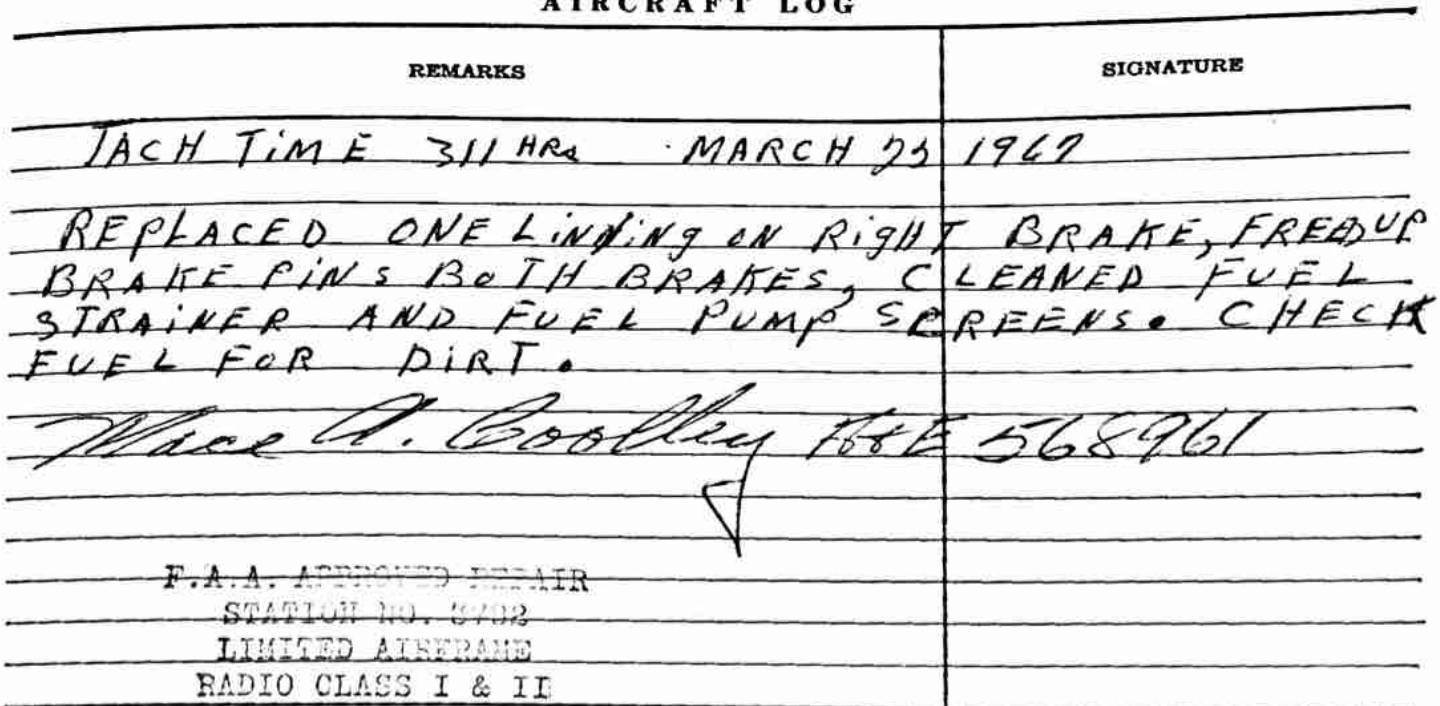 AIRCRAFT LOG
REMARKS SIGNATURE
TACH TIME 311 HRS MARCH 23 1967
REPLACED ONE LINNING ON RIGHT BRAKE, FREED UP
BRAKE PINS BOTH BRAKES, CLEANED FUEL
STRAINER AND FUEL PUMP SCREENS. CHECK
FUEL FOR DIRT.
A. Coolley A&E 568961
F.A.A. APPROVED REPAIR
STATION NO. 3702
LIMITED AIRFRAME
RADIO CLASS I & II